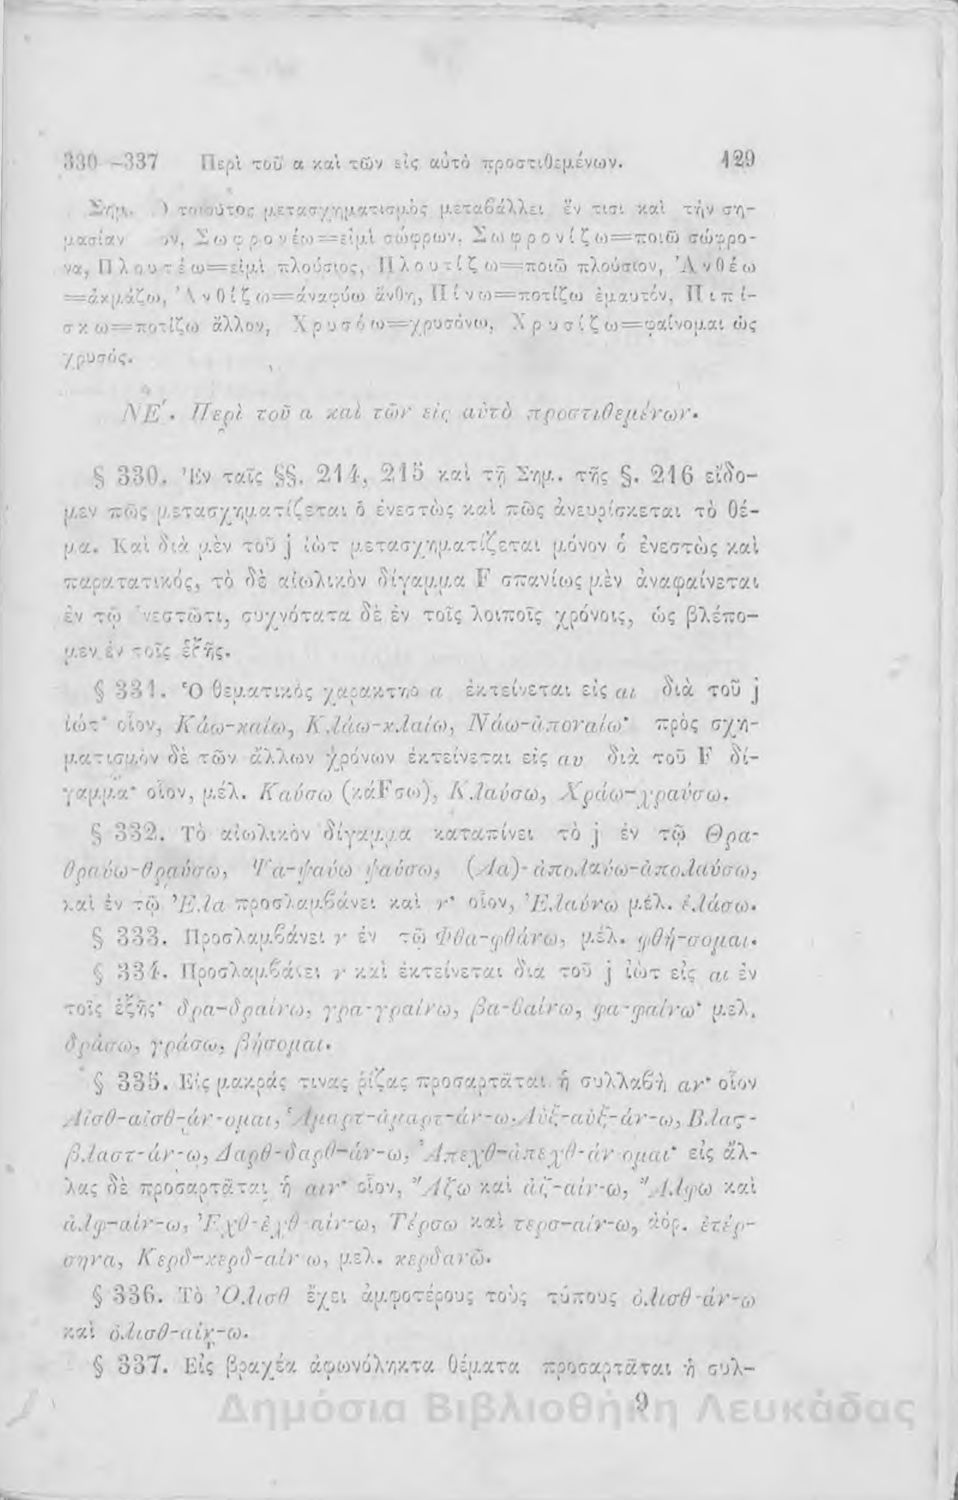 330–337 Περὶ τοῦ α καὶ τῶν εἰς αὐτὸ προστιθεμένων. 129
Σημ. ) τοιοῦτος μετασχηματισμὸς μεταβάλλει ἔν τισι καὶ τὴν ση-
μασίαν Σωφρονέω=εἰμὶ σώφρων, Σωφρονίζω=ποιῶ σώφρο-
να, Πλουτέω=εἰμὶ πλούσιος, Πλουτίζω=ποιῶ πλούσιον, Ἀνθέω
=ἀκμάζω, Ἀνθίζω=ἀναφύω ἄνθη, Πίνω=ποτίζω ἐμαυτόν, Πιπί-
σκω=ποτίζω ἄλλον, Χρυσόω=χρυσόνω, Χρυσίζω=φαίνομαι ὡς
χρυσός.
ΝΕ΄. Περὶ τοῦ α καὶ τῶν εἰς αὐτὸ προστιθεμένων.
§ 330. Ἐν ταῖς §§. 214, 215 καὶ τῇ Σημ. τῆς §. 216 εἴδο-
μεν πῶς μετασχηματίζεται ὁ ἐνεστὼς καὶ πῶς ἀνευρίσκεται τὸ θέ-
μα. Καὶ διὰ μὲν τοῦ j ἰὼτ μετασχηματίζεται μόνον ὁ ἐνεστὼς καὶ
παρατατικός, τὸ δὲ αἰωλικὸν δίγαμμα F σπανίως μὲν ἀναφαίνεται
ἐν τῷ νεστῶτι, συχνότατα δὲ ἐν τοῖς λοιποῖς χρόνοις, ὡς βλέπο-
μεν ἐν τοῖς ἑξῆς.
§ 331. Ὁ θεματικὸς χαρακτὴρ α ἐκτείνεται εἰς αι διὰ τοῦ j
ἰώτ· οἷον, Κάω-καίω, Κλάω-κλαίω, Νάω-ἀποναίω· πρὸς σχη-
ματισμὸν δὲ τῶν ἄλλων χρόνων ἐκτείνεται εἰς αυ διὰ τοῦ F δί-
γαμμα· οἷον, μέλ. Καύσω (κάFσω), Κλαύσω, Χράω-χραύσω.
§ 332. Τὸ αἰωλικὸν δίγαμμα καταπίνει τὸ j ἐν τῷ Θρα-
θραύω-θραύσω, Ψα-ψαύω ψαύσω, (Λα)-ἀπολαύω-ἀπολαύσω,
καὶ ἐν τῷ Ἐλα προσλαμβάνει καὶ ν· οἷον, Ἐλαύνω μέλ. ἐλάσω.
§ 333. Προσλαμβάνει ν ἐν τῷ Φθα-φθάνω, μέλ. φθή-σομαι.
§ 334. Προσλαμβάνει ν καὶ ἐκτείνεται διὰ τοῦ j ἰὼτ εἰς αι ἐν
τοῖς ἑξῆς· δρα-δραίνω, γρα-γραίνω, βα-βαίνω, φα-φαίνω· μελ.
δράσω, γράσω, βήσομαι.
§ 335. Εἰς μακράς τινας ῥίζας προσαρτᾶται ἡ συλλαβὴ αν· οἷον
Αἰσθ-αἰσθ-άν-ομαι, Ἁμαρτ-ἁμαρτ-άν-ω. Αὐξ-αὐξ-άν-ω, Βλαστ-
βλαστ-άν-ω, Δαρθ-δαρθ-άν-ω, Ἀπεχθ-ἀπεχθ-άν ομαι· εἰς ἄλ-
λας δὲ προσαρτᾶται ἡ αιν· οἷον, Ἄζω καὶ ἀζ-αίν-ω, Ἄλφω καὶ
ἀλφ-αίν-ω, Ἐχθ-ἐχθ-αίν-ω, Τέρσω καὶ τερσ-αίν-ω, ἀόρ. ἐτέρ-
σηνα, Κερδ-κερδ-αίν ω, μελ. κερδανῶ.
§ 336. Τὸ Ὀλισθ ἔχει ἀμφοτέρους τοὺς τύπους ὀλισθ-άν-ω
καὶ ὀλισθ-αίν-ω.
§ 337. Εἰς βραχέα ἀφωνόληκτα θέματα προσαρτᾶται ἡ συλ-
9
Δημόσια Βιβλιοθήκη Λευκάδας